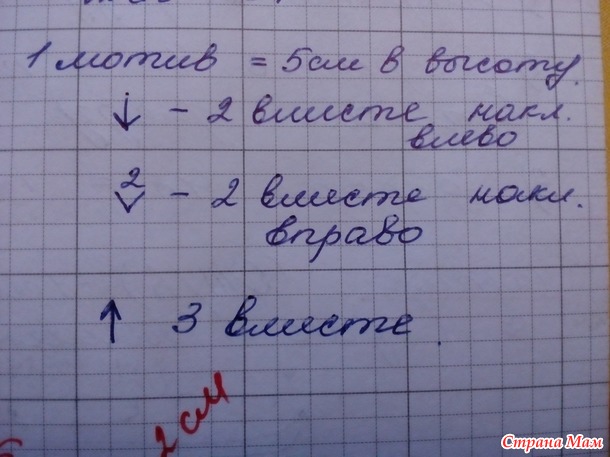 1 мотив = 5см в высоту.
↓ - 2 вместе накл.
влево
2
V - 2 вместе накл.
вправо
↑ 3 вместе.
2 см
Страна Мам